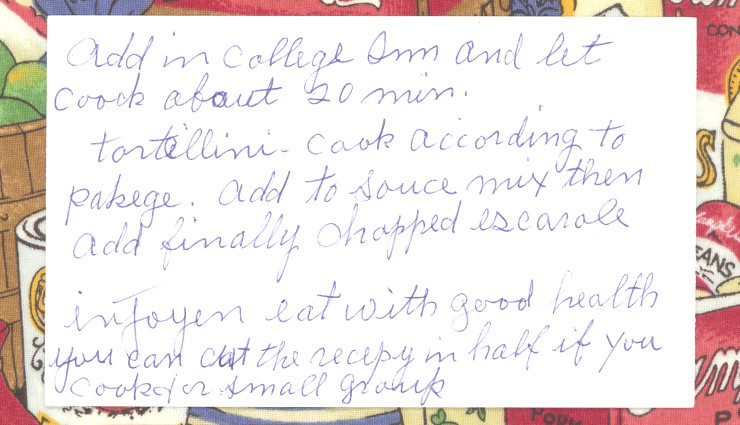 Add in College Inn and let
coock about 20 min.
tortillini - cook according to
pakege. Add to souce mix then
add finally chopped escarole
injoyen eat with good health
you can cut the recepy in half if you
cook for small group
CON
S
EANS
PORK
P